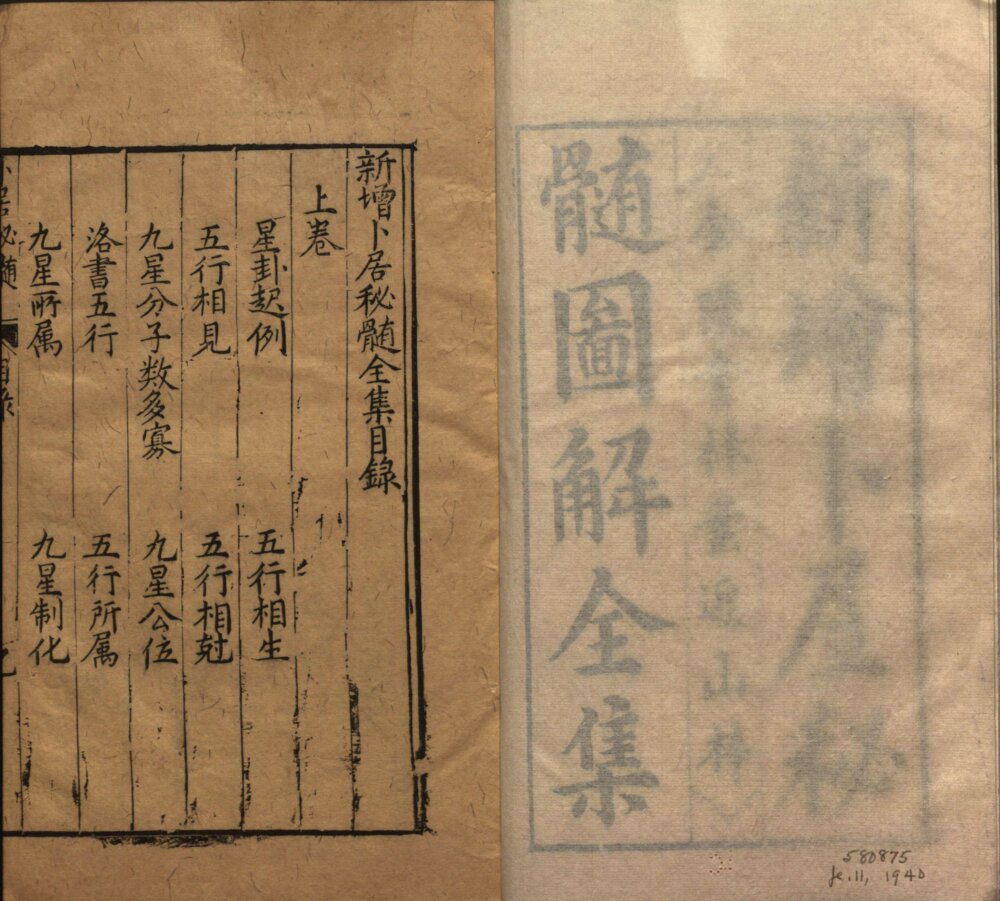 新繪卜居秘
林 近山梓
髄圖解全集
580875
Je.11, 1940
新增卜居秘髄全集目錄
上卷
星卦起例 五行相生
五行相見 五行相尅
九星分子数多寡 九星公位
洛書五行 五行所属
九星所属 九星制化
居秘髄 目錄